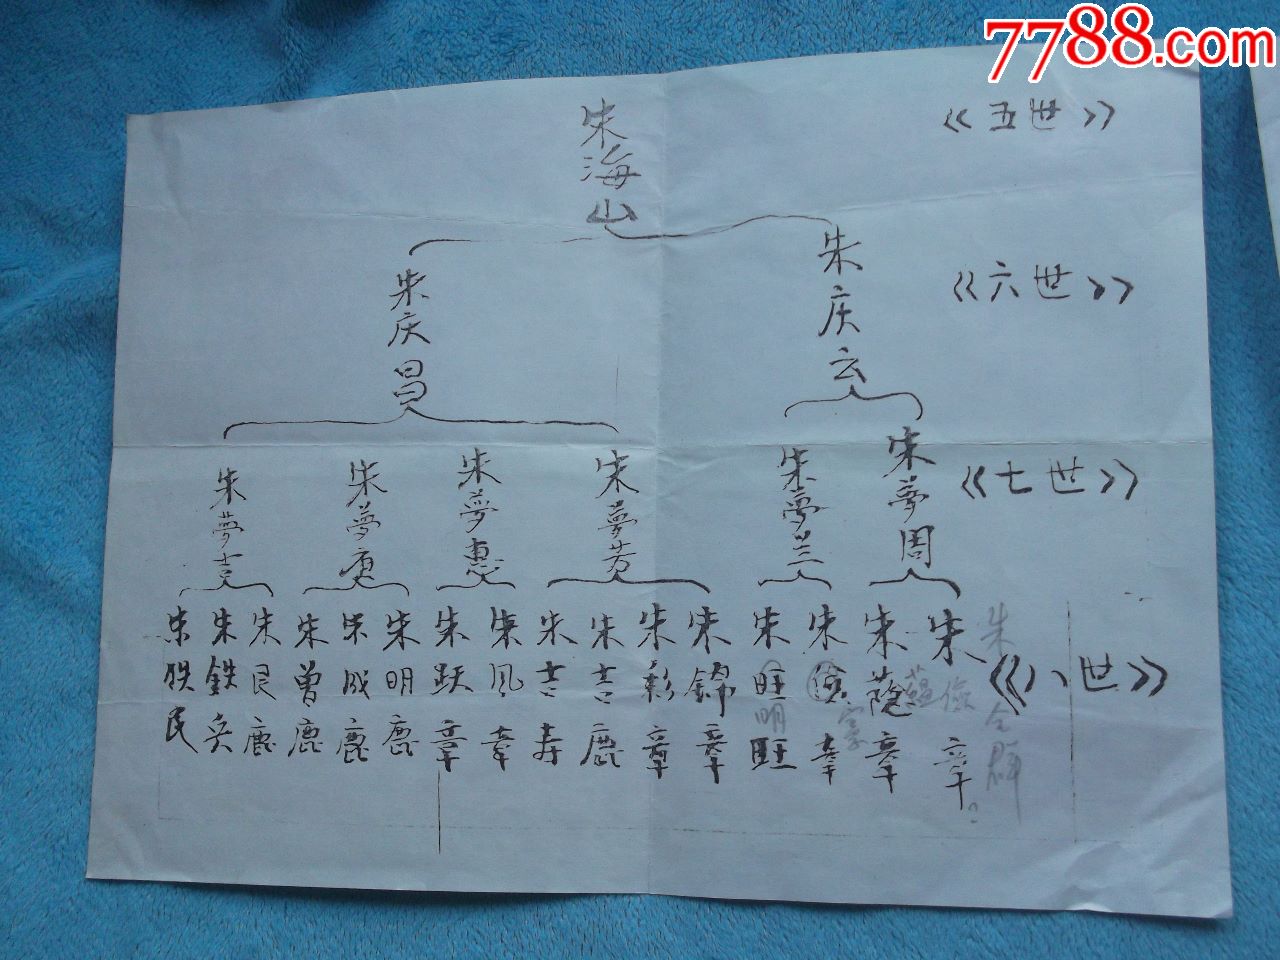 7788.com
朱海山
《五世》
朱庆昌
朱庆云
《六世》
朱夢吉
朱夢庚
朱夢惠
朱夢芳
朱夢兰
朱夢周
《七世》
朱铁民
朱鉄兵
朱良鹿
朱曾鹿
朱成鹿
朱明鹿
朱跃章
朱凤章
朱吉寿
朱吉鹿
朱彩章
朱錦章
朱旺旺
明
朱俭章
家
朱蔭章
蕴
朱章
俭
朱全群
《八世》